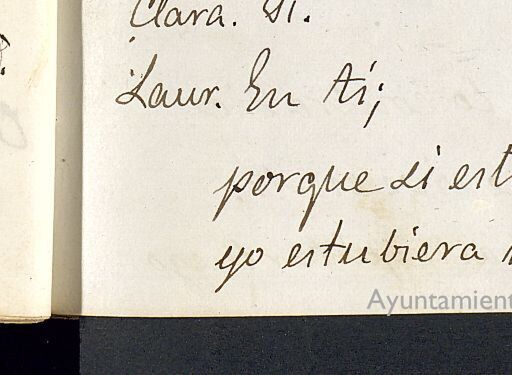 Clara. Si.
Laur. En tí;
porque si est
yo estubiera
Ayuntamient